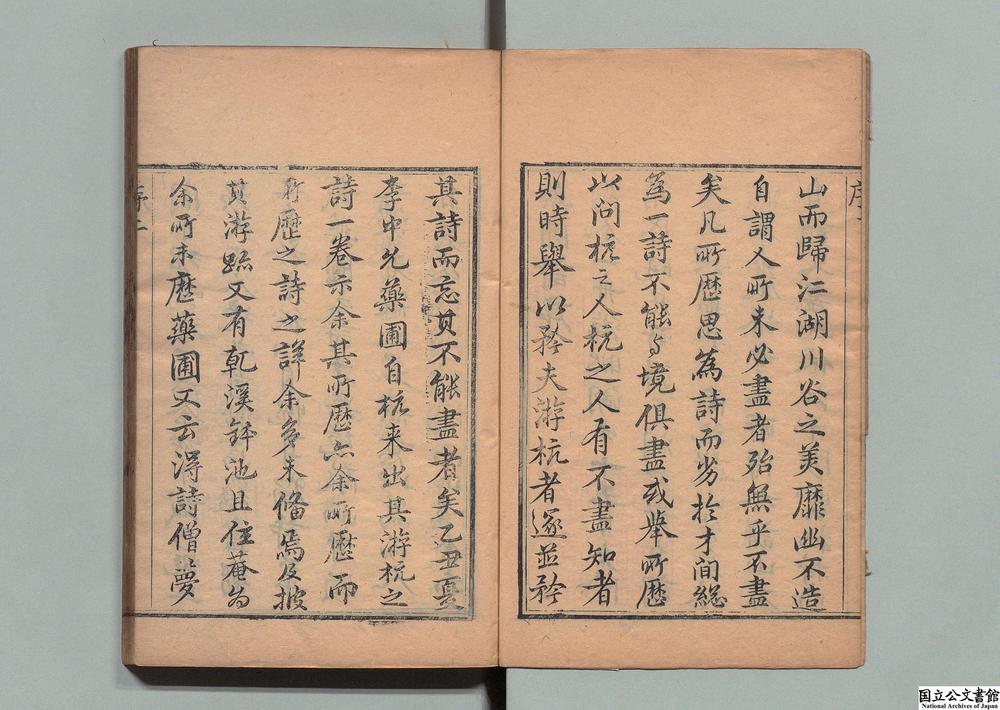 序二
山而歸江湖川谷之美靡幽不造
自謂人所未必盡者殆無乎不盡
矣凡所歷思為詩而劣於才間總
為一詩不能与境俱盡或舉所歷
以問杭之人杭之人有不盡知者
則時舉以矜夫游杭者遂並矜
其詩而忘其不能盡者矣乙丑夏
李中允藥圃自杭来出其游杭之
詩一卷示余其所歷亦余所歷而
所歷之詩之詳余多未備焉及披
其游蹟又有乹溪鉢池且住菴為
余所未歷藥圃又云得詩僧夢
国立公文書館
National Archives of Japan